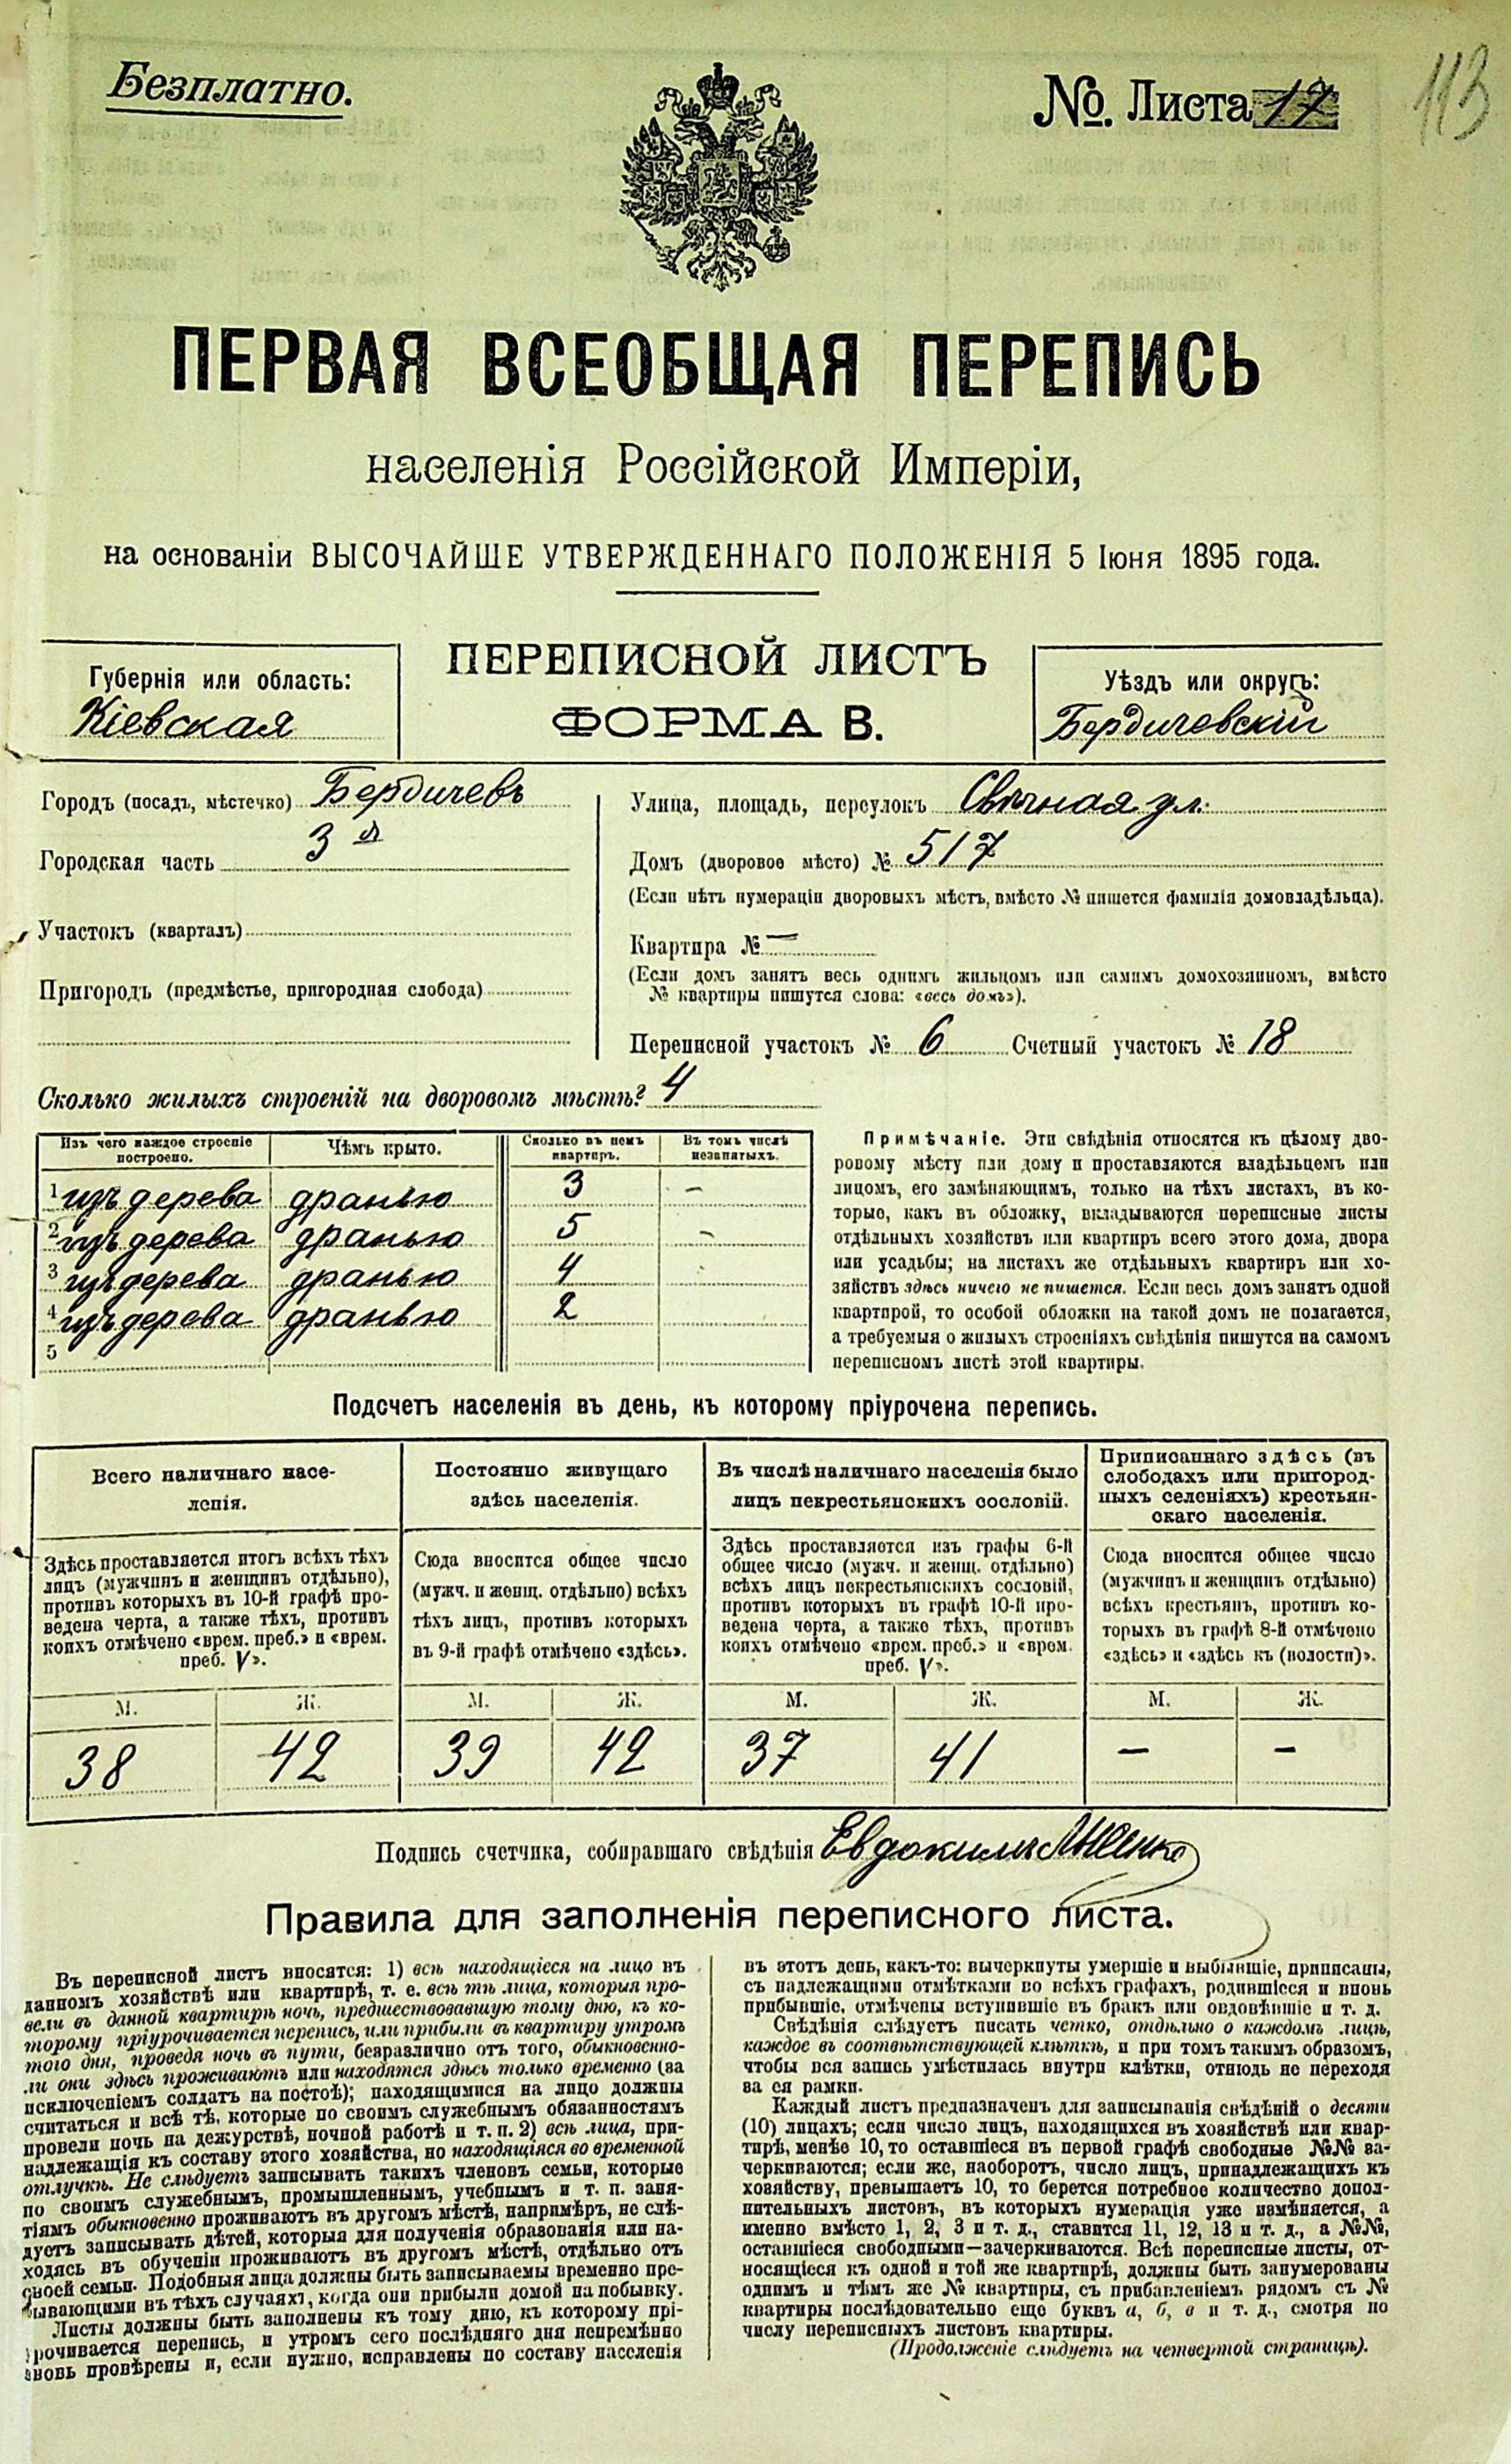 Безплатно.
№. Листа 17
113
ПЕРВАЯ ВСЕОБЩАЯ ПЕРЕПИСЬ
населенія Россійской Имперіи,
на основаніи ВЫСОЧАЙШЕ УТВЕРЖДЕННАГО ПОЛОЖЕНІЯ 5 Іюня 1895 года.
ПЕРЕПИСНОЙ ЛИСТЪ
ФОРМА В.
Губернія или область:
Кіевская
Уѣздъ или округъ:
Бердичевскій
Городъ (посадъ, мѣстечко) Бердичевъ
Городская часть 3 я
Участокъ (кварталъ)
Пригородъ (предмѣстье, пригородная слобода)
Улица, площадь, переулокъ Свѣчная ул.
Домъ (дворовое мѣсто) № 517
(Если нѣтъ нумераціи дворовыхъ мѣстъ, вмѣсто № пишется фамилія домовладѣльца).
Квартира № —
(Если домъ занятъ весь однимъ жильцомъ или самимъ домохозяиномъ, вмѣсто
№ квартиры пишутся слова: «весь домъ»).
Переписной участокъ № 6 Счетный участокъ № 18
Сколько жилыхъ строеній на дворовомъ мѣстѣ? 4
Изъ чего каждое строеніе построено. Чѣмъ крыто. Сколько въ немъ квартиръ. Въ томъ числѣ незанятыхъ.
1 изъ дерева дранью 3 –
2 изъ дерева дранью 5 –
3 изъ дерева дранью 4
4 изъ дерева дранью 2
5
Примѣчаніе. Эти свѣдѣнія относятся къ цѣлому дво-
ровому мѣсту или дому и проставляются владѣльцемъ или
лицомъ, его замѣняющимъ, только на тѣхъ листахъ, въ ко-
торые, какъ въ обложку, вкладываются переписные листы
отдѣльныхъ хозяйствъ или квартиръ всего этого дома, двора
или усадьбы; на листахъ же отдѣльныхъ квартиръ или хо-
зяйствъ здѣсь ничего не пишется. Если весь домъ занятъ одной
квартирой, то особой обложки на такой домъ не полагается,
а требуемыя о жилыхъ строеніяхъ свѣдѣнія пишутся на самомъ
переписномъ листѣ этой квартиры.
Подсчетъ населенія въ день, къ которому пріурочена перепись.
Всего наличнаго насе-
ленія.
Здѣсь проставляется итогъ всѣхъ тѣхъ
лицъ (мужчинъ и женщинъ отдѣльно),
противъ которыхъ въ 10-й графѣ про-
ведена черта, а также тѣхъ, противъ
коихъ отмѣчено «врем. преб.» и «врем.
преб. V».
Постоянно живущаго
здѣсь населенія.
Сюда вносится общее число
(мужч. и женщ. отдѣльно) всѣхъ
тѣхъ лицъ, противъ которыхъ
въ 9-й графѣ отмѣчено «здѣсь».
Въ числѣ наличнаго населенія было
лицъ некрестьянскихъ сословій.
Здѣсь проставляется изъ графы 6-й
общее число (мужч. и женщ. отдѣльно)
всѣхъ лицъ некрестьянскихъ сословій,
противъ которыхъ въ графѣ 10-й про-
ведена черта, а также тѣхъ, противъ
коихъ отмѣчено «врем. преб.» и «врем.
преб. V».
Приписаннаго здѣсь (въ
слободахъ или пригород-
ныхъ селеніяхъ) крестьян-
скаго населенія.
Сюда вносится общее число
(мужчинъ и женщинъ отдѣльно)
всѣхъ крестьянъ, противъ ко-
торыхъ въ графѣ 8-й отмѣчено
«здѣсь» и «здѣсь къ (волости)».
М. Ж. М. Ж. М. Ж. М. Ж.
38 42 39 42 37 41 – –
Подпись счетчика, собиравшаго свѣдѣнія Евдокимъ
Правила для заполненія переписного листа.
Въ переписной листъ вносятся: 1) всѣ находящіеся на лицо въ
данномъ хозяйствѣ или квартирѣ, т. е. всѣ тѣ лица, которыя про-
вели въ данной квартирѣ ночь, предшествовавшую тому дню, къ ко-
торому пріурочивается перепись, или прибыли въ квартиру утромъ
того дня, проведя ночь въ пути, безразлично отъ того, обыкновенно-
ли они здѣсь проживаютъ или находятся здѣсь только временно (за
исключеніемъ солдатъ на постоѣ); находящимися на лицо должны
считаться и всѣ тѣ, которые по своимъ служебнымъ обязанностямъ
провели ночь на дежурствѣ, ночной работѣ и т. п. 2) всѣ лица, при-
надлежащія къ составу этого хозяйства, но находящіяся во временной
отлучкѣ. Не слѣдуетъ записывать такихъ членовъ семьи, которые
по своимъ служебнымъ, промышленнымъ, учебнымъ и т. п. заня-
тіямъ обыкновенно проживаютъ въ другомъ мѣстѣ, напримѣръ, не слѣ-
дуетъ записывать дѣтей, которыя для полученія образованія или на-
ходясь въ обученіи проживаютъ въ другомъ мѣстѣ, отдѣльно отъ
своей семьи. Подобныя лица должны быть записываемы временно пре-
бывающими въ тѣхъ случаяхъ, когда они прибыли домой на побывку.
Листы должны быть заполнены къ тому дню, къ которому прі-
урочивается перепись, и утромъ сего послѣдняго дня непремѣнно
вновь провѣрены и, если нужно, исправлены по составу населенія
въ этотъ день, какъ-то: вычеркнуты умершіе и выбывшіе, приписаны,
съ надлежащими отмѣтками во всѣхъ графахъ, родившіеся и вновь
прибывшіе, отмѣчены вступившіе въ бракъ или овдовѣвшіе и т. д.
Свѣдѣнія слѣдуетъ писать четко, отдѣльно о каждомъ лицѣ,
каждое въ соотвѣтствующей клѣткѣ, и при томъ такимъ образомъ,
чтобы вся запись умѣстилась внутри клѣтки, отнюдь не переходя
за ея рамки.
Каждый листъ предназначенъ для записыванія свѣдѣній о десяти
(10) лицахъ; если число лицъ, находящихся въ хозяйствѣ или квар-
тирѣ, менѣе 10, то оставшіеся въ первой графѣ свободные №№ за-
черкиваются; если же, наоборотъ, число лицъ, принадлежащихъ къ
хозяйству, превышаетъ 10, то берется потребное количество допол-
нительныхъ листовъ, въ которыхъ нумерація уже измѣняется, а
именно вмѣсто 1, 2, 3 и т. д., ставится 11, 12, 13 и т. д., а №№,
оставшіеся свободными—зачеркиваются. Всѣ переписные листы, от-
носящіеся къ одной и той же квартирѣ, должны быть занумерованы
однимъ и тѣмъ же № квартиры, съ прибавленіемъ рядомъ съ №
квартиры послѣдовательно еще буквъ а, б, в и т. д., смотря по
числу переписныхъ листовъ квартиры.
(Продолженіе слѣдуетъ на четвертой страницѣ).